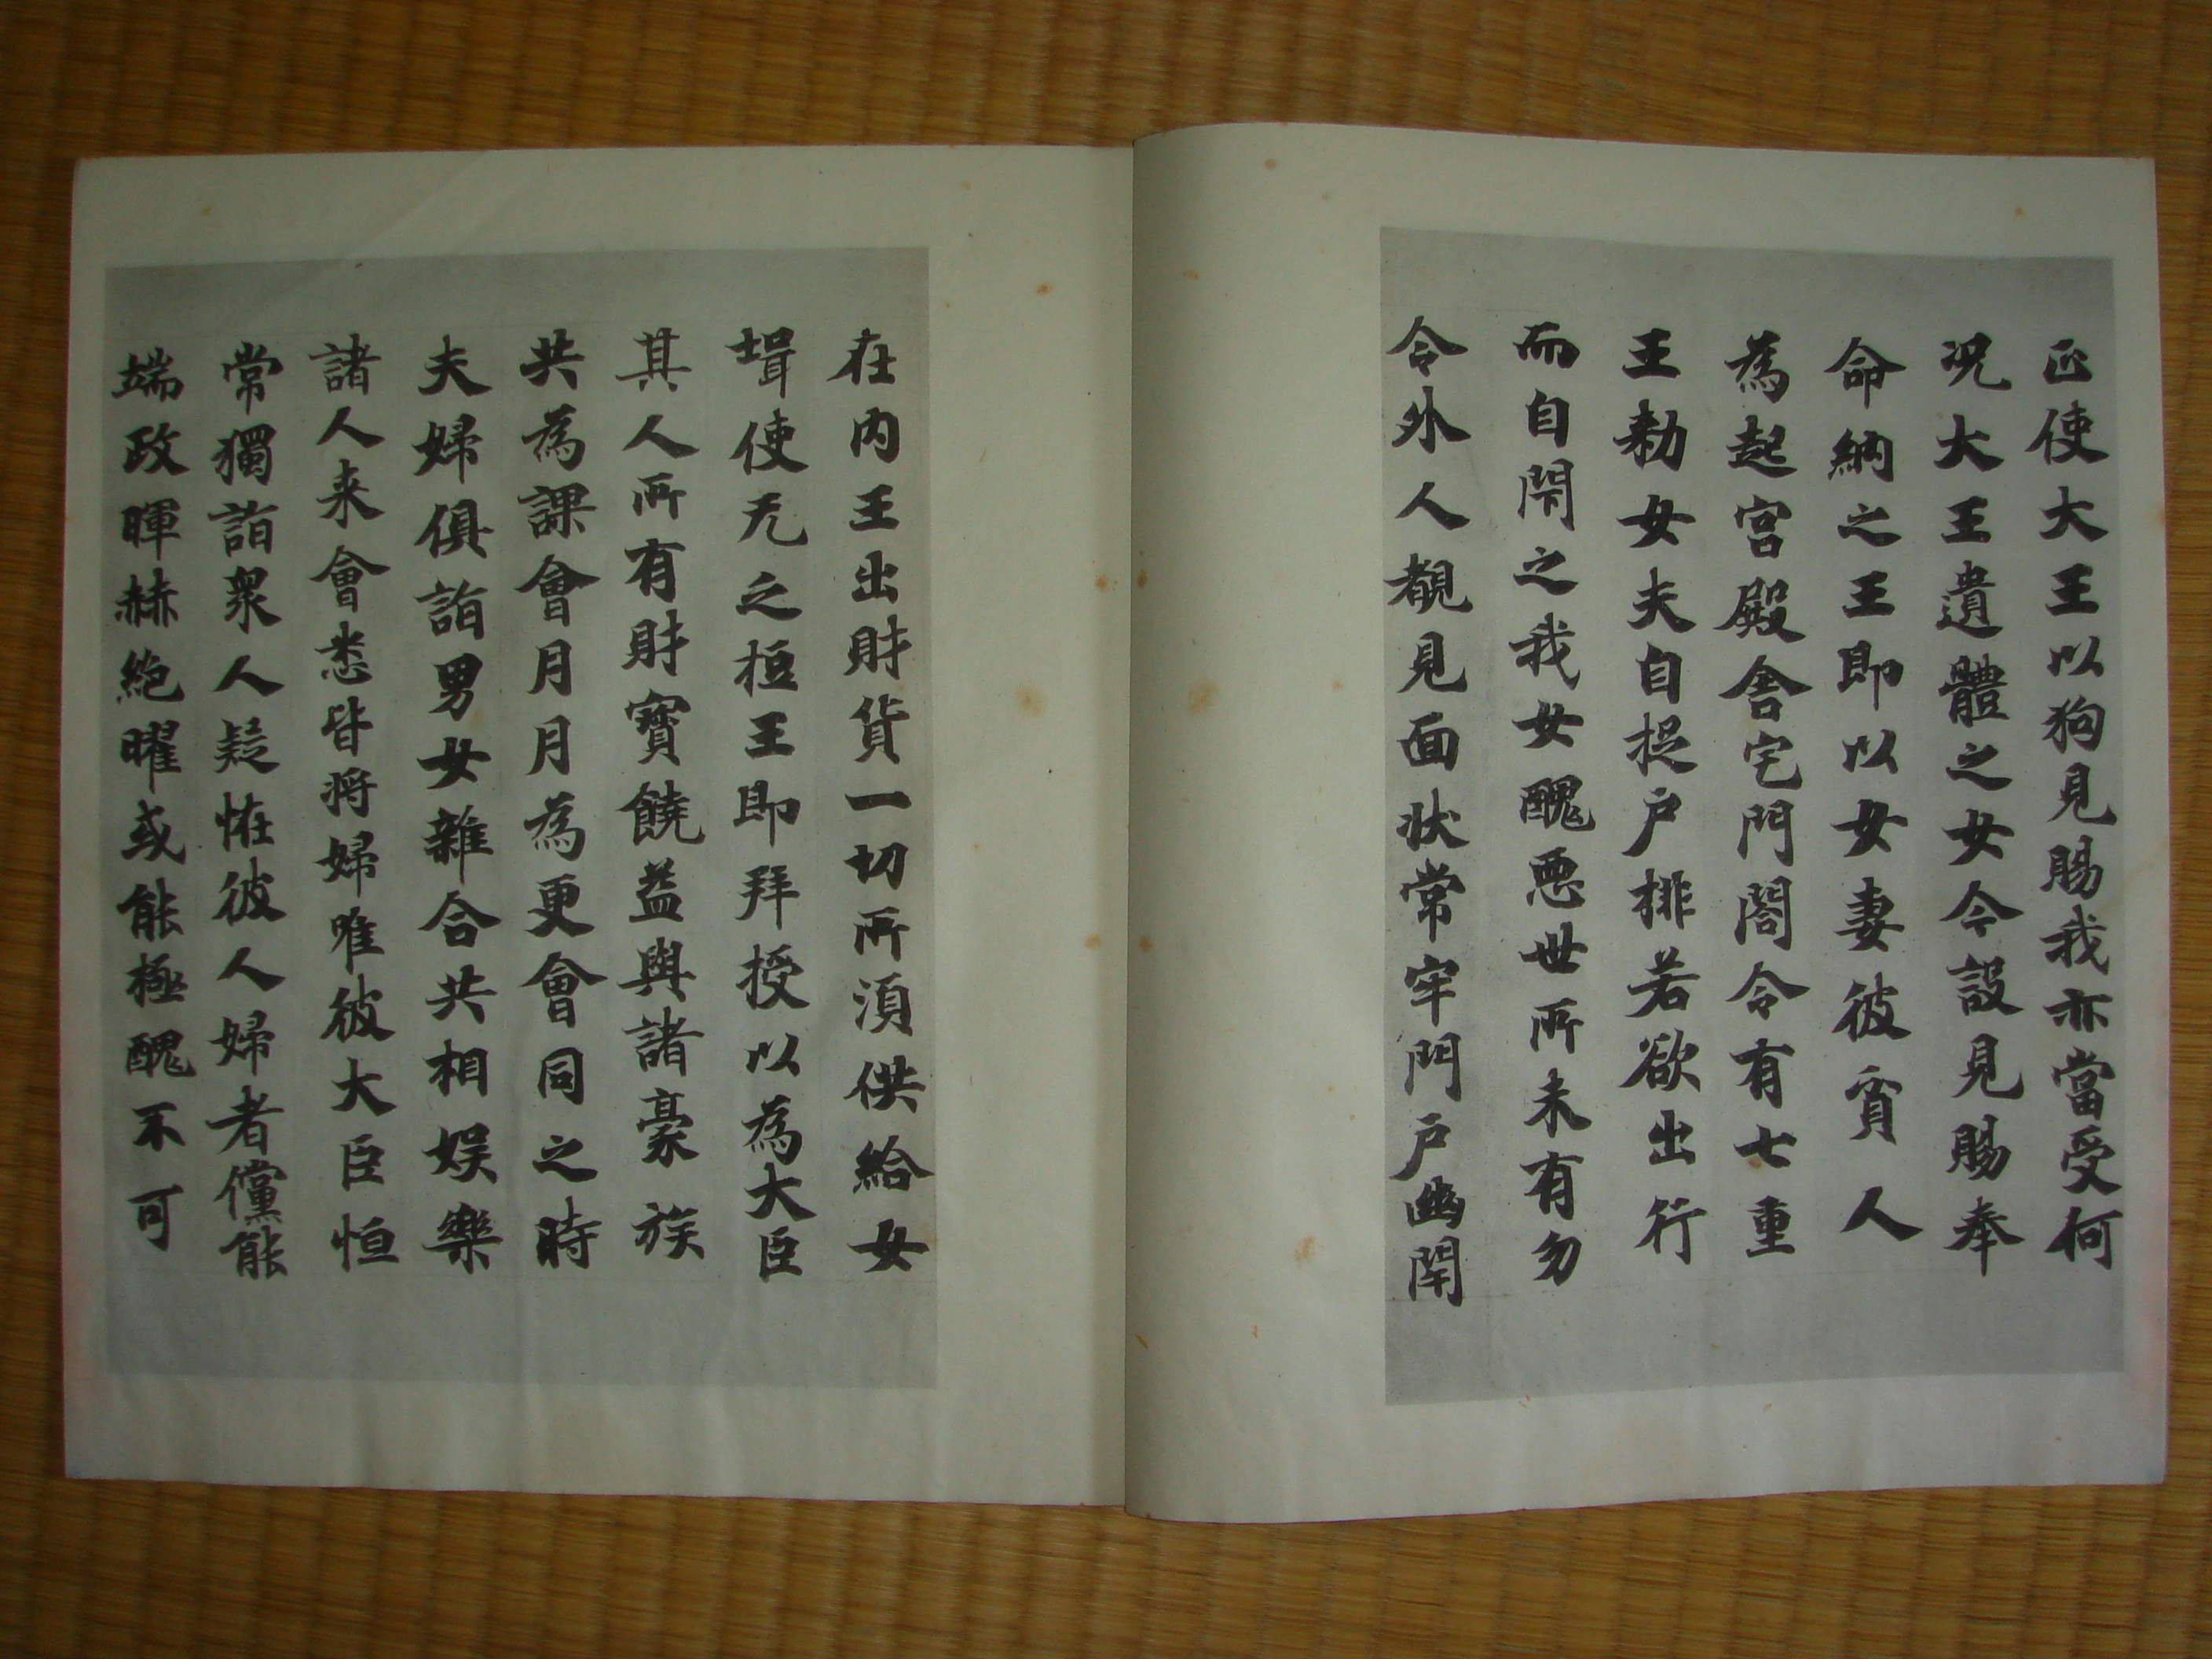 正使大王以狗見賜我亦當受何
況大王遺體之女今設見賜奉
命納之王即以女妻彼賓人
為起宮殿舍宅門閤令有七重
王勅女夫自捉戶排若欲出行
而自閇之我女醜惡世所未有勿
令外人覩見面狀常牢門戶幽閇
在內王出財貨一切所須供給女
壻使无之短王即拜授以為大臣
其人所有財寶饒益與諸豪族
共為課會月月為更會同之時
夫婦俱詣男女雜合共相娛樂
諸人来會悉皆將婦唯彼大臣恒
常獨詣眾人疑恠彼人婦者儻能
端政暉赫絶曜或能極醜不可